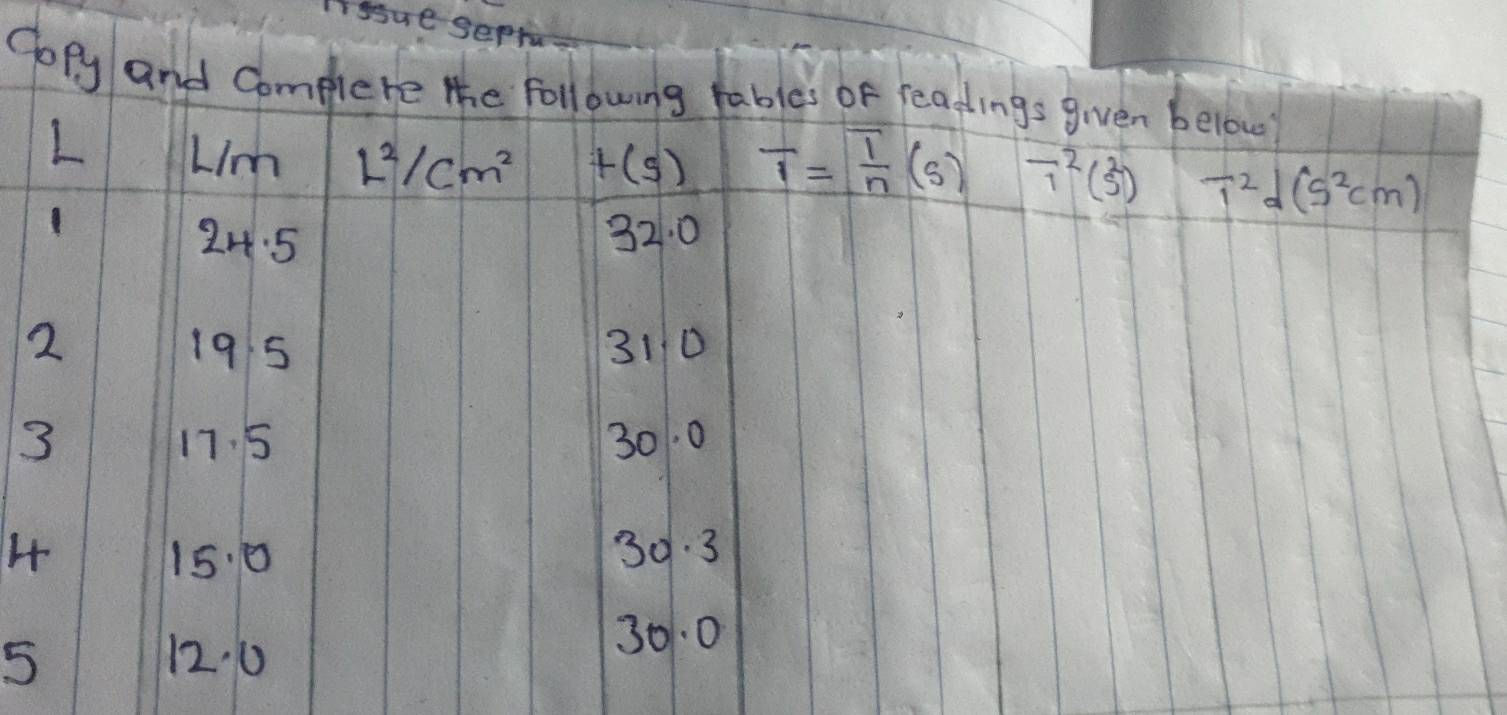 Tissue
Copy and Complete the following tables of readings given below:
L L/m L²/cm² t(s) T = T/n (s) T²(s²) T²d(s²cm)
1 24.5 32.0
2 19.5 31.0
3 17.5 30.0
4 15.0 30.3
5 12.0 30.0